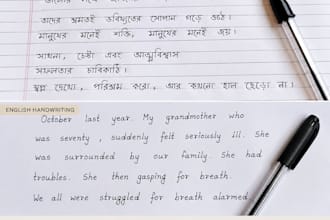 তাদের শ্রমতই ভবিষ্যতের সোপান গড়ে ওঠে।
মানুষের মনেই শক্তি, মানুষের মনেই জয়।
সাধনা, চেষ্টা এবং আত্মবিশ্বাস
সাফল্যের চাবিকাঠি।
স্বপ্ন দেখো, পরিশ্রম করো, আর কখনো হাল ছেড়ো না।
ENGLISH HANDWRITING
October last year. My grandmother who
was seventy, suddenly felt seriously ill. She
was surrounded by our family. She had
troubles. She then gasping for breath.
We all were struggled for breath alarmed